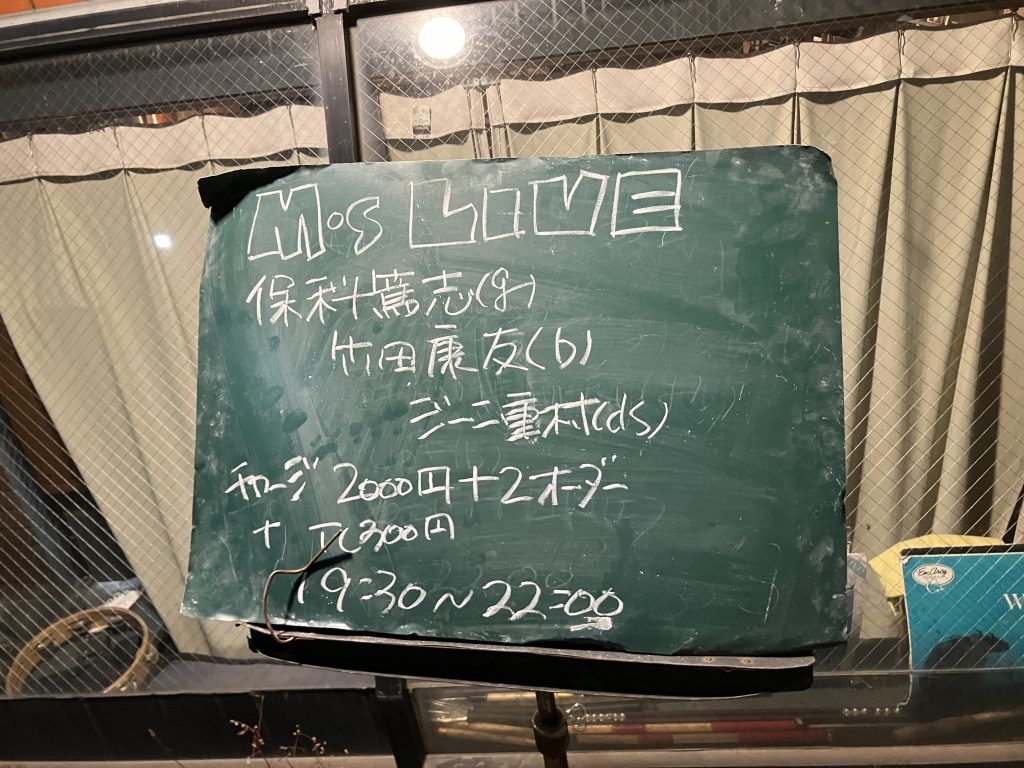 Mos LIVE
保科篤志(g)
竹田康友(b)
ジーニ重村(ds)
チャージ 2000円+2オーダー
+ TC300円
19:30~22:00
EmArcy
W